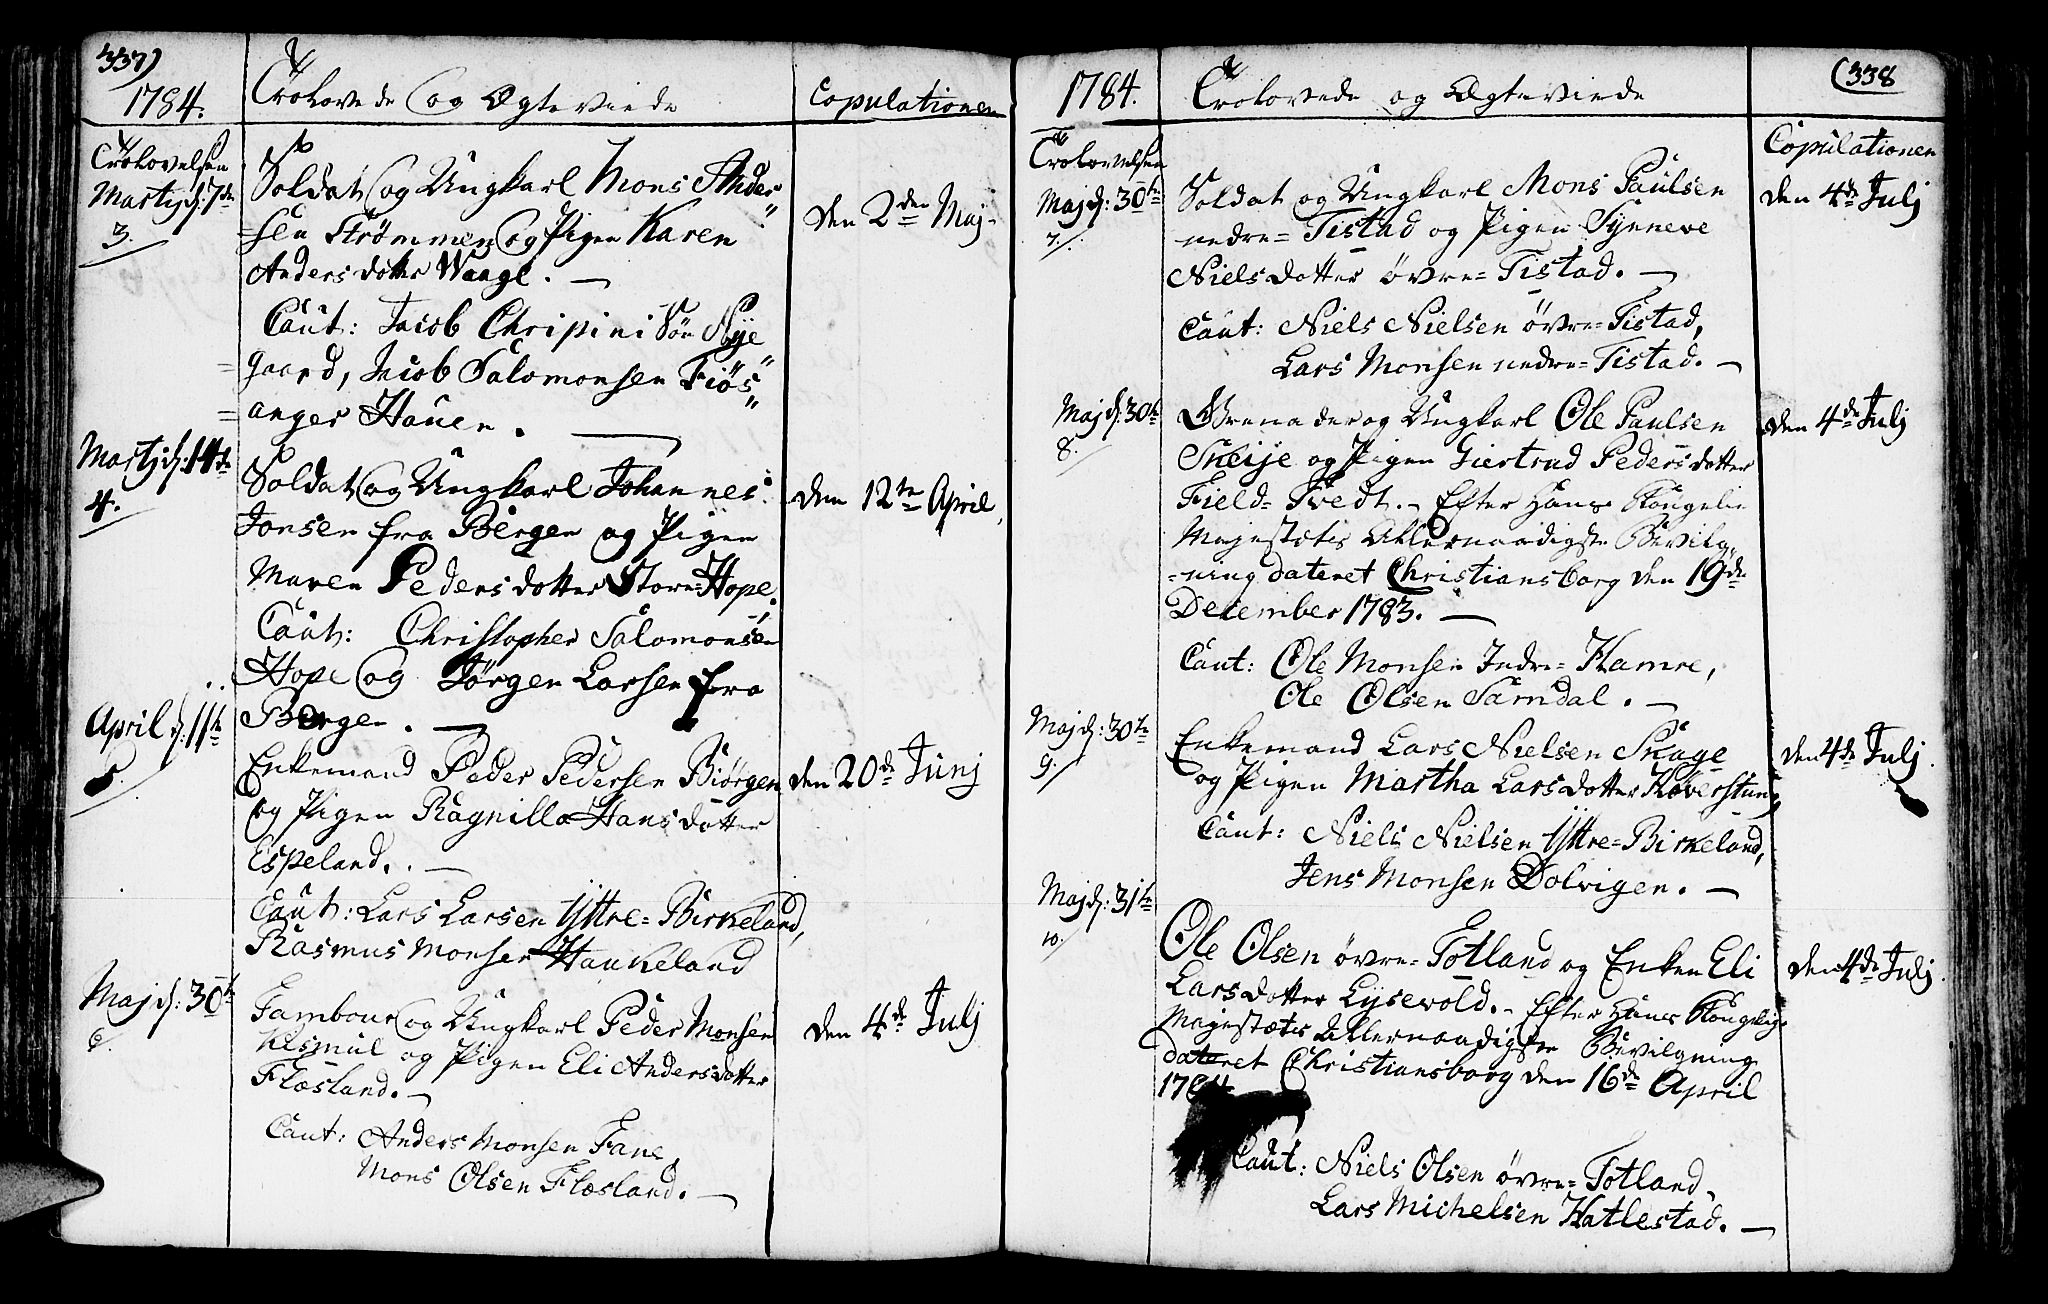 337)
1784.
Trolovede og Ægteviede
Copulationen
Trolovelsen
Martij d: 7de
3.
Soldat og Ungkarl Mons Ander-
=sen Strømmen og Pigen Karen
Andersdotter Waage. —
den 2den Maj.
Caut: Jacob Chrispini Søn Nye
=gaard, Jacob Salomonsen Fiøs
=anger Hauen. —
Martij d: 14de
4.
Soldat og Ungkarl Johannes
Jonsen fra Bergen og Pigen
Maren Pedersdotter Store=Hope.
den 12te April,
Caut: Christopher Salomonsen
Hope og Jørgen Larsen fra
Bergen. —
April d: 11te
5.
Enkemand Peder Pedersen Biørgen
og Pigen Ragnilla Hansdotter
Espeland. —
den 20de Junj
Caut: Lars Larsen Yttre=Birkeland,
Rasmus Monsen Haukeland
Maj d: 30te
6.
Tambour og Ungkarl Peder Monsen
og Pigen Eli Andersdotter
Flæsland. —
den 4de Julj
Caut: Anders Monsen Fane,
Mons Olsen Flæsland. —
(338
1784.
Trolovede og Ægteviede
Trolovelsen
Copulationen
Maj d: 30te
7.
Soldat og Ungkarl Mons Paulsen
nedre=Tistad og Pigen Synneve
Nielsdotter øvre=Tistad. —
den 4de Julj
Caut: Niels Nielsen øvre=Tistad,
Lars Monsen nedre=Tistad. —
Maj d: 30te
8.
Grenader og Ungkarl Ole Paulsen
Skeije og Pigen Giertrud Pedersdotter
Field=Tvedt. — Efter Hans Kongelie
Majestætes Allernaadigste Bevilg-
=ning dateret Christiansborg den 19de
December 1783. —
den 4de Julj
Caut: Ole Monsen Indre=Hamre,
Ole Olsen Samdal. —
Maj d: 30te
9.
Enkemand Lars Nielsen Skage
og Pigen Martha Larsdotter Røverstun,
den 4de Julj.
Caut: Niels Nielsen Yttre=Birkeland,
Jens Monsen Dolvigen. —
Maj d: 31te
10.
Ole Olsen øvre=Totland og Enken Eli
Larsdotter Lysevold. — Efter Hans Kongelige
Majestætes Allernaadigste Bevilgning
dateret Christiansborg den 16de April
1784
den 4de Julj.
Caut: Niels Olsen øvre=Totland,
Lars Michelsen Hatlestad. —